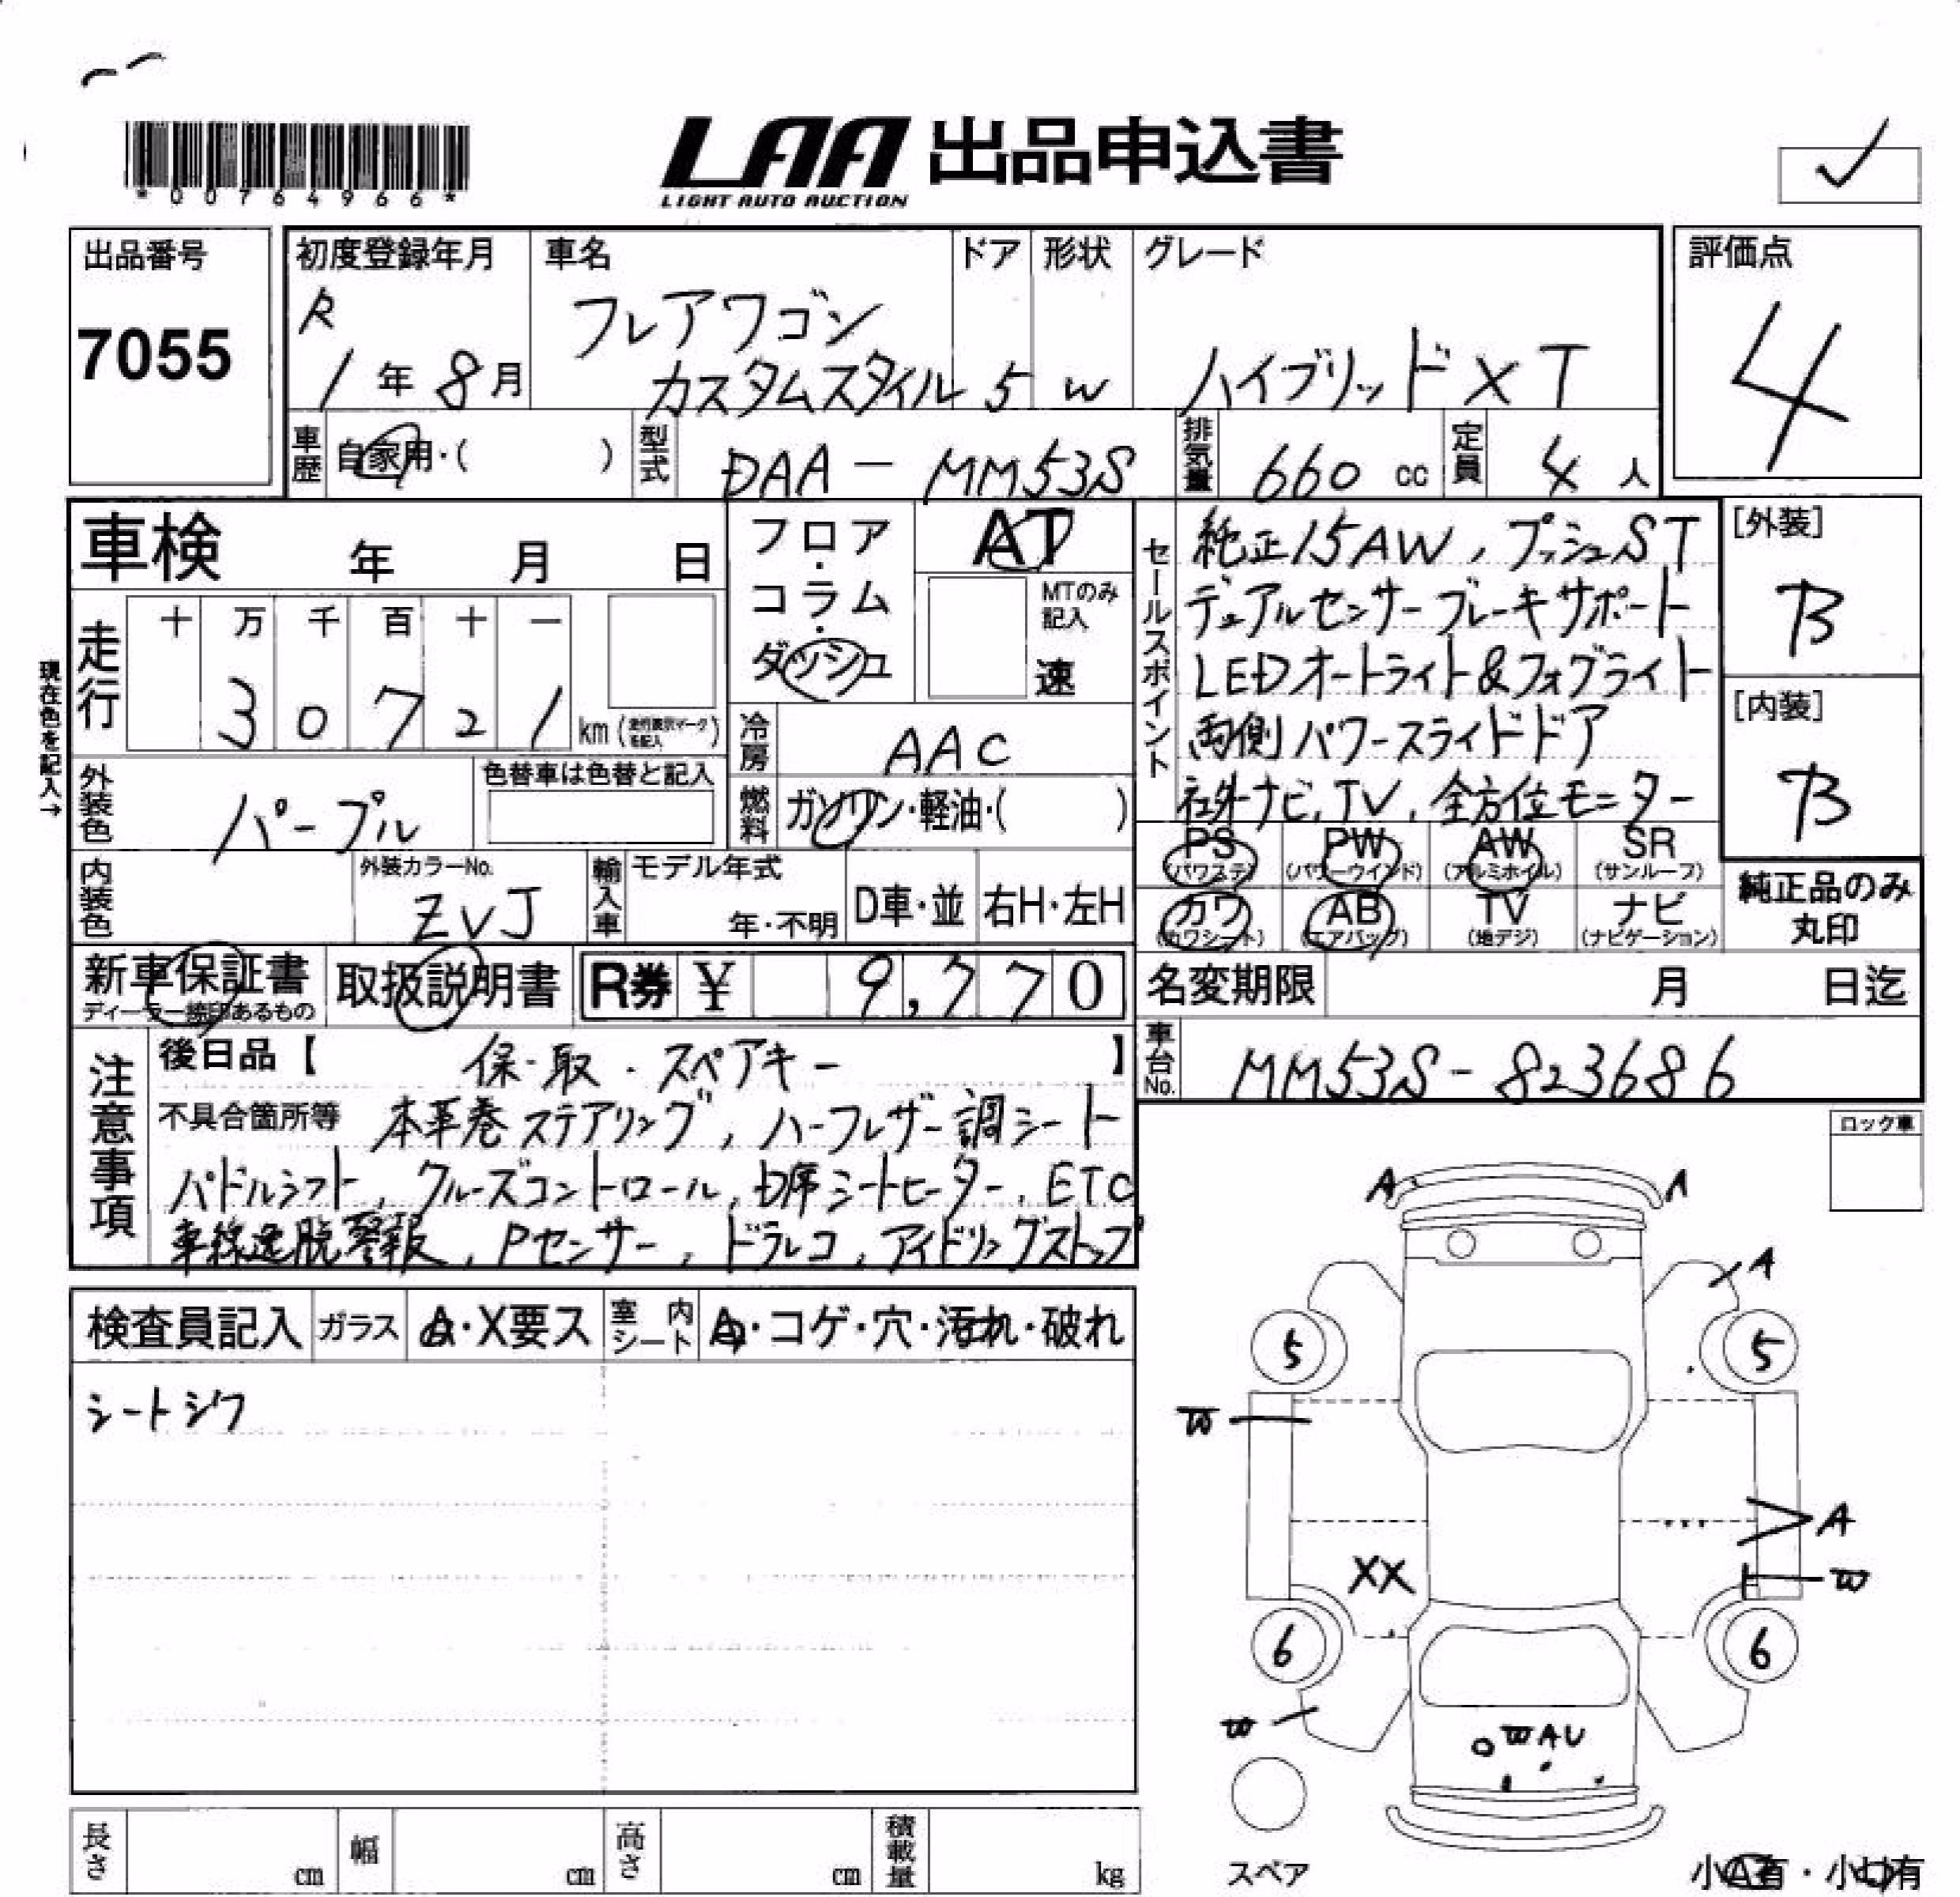 *00764966*
LAA 出品申込書
LIGHT AUTO AUCTION
✓
出品番号
7055
初度登録年月
R
1年8月
車名
フレアワゴン
カスタムスタイル
ドア
5
形状
W
グレード
ハイブリッドXT
評価点
4
車歴 自家用・( )
型式 DAA-MM53S
排気量 660 cc
定員 4人
車検 年 月 日
フロア・
コラム・
ダッシュ
AT
MTのみ
記入
速
現在色を記入→
走行
十 万 千 百 十 一
3 0 7 2 1 km (走行表示マークを記入)
冷房 AAC
燃料 ガソリン・軽油・( )
外装色 パープル
色替車は色替と記入
内装色
外装カラーNo.
ZVJ
輸入車
モデル年式
年・不明
D車・並
右H・左H
セールスポイント
純正15AW, プッシュST
デュアルセンサーブレーキサポート
LEDオートライト&フォグライト
両側パワースライドドア
社外ナビ, TV, 全方位モニター
[外装]
B
[内装]
B
PS
(パワステ)
PW
(パワーウインド)
AW
(アルミホイル)
SR
(サンルーフ)
カワ
(カワシート)
AB
(エアバッグ)
TV
(地デジ)
ナビ
(ナビゲーション)
純正品のみ
丸印
新車保証書
ディーラー捺印あるもの
取扱説明書
R券 ¥ 9,770
名変期限 月 日迄
車台No. MM53S-823686
注意事項
後日品【 保・取・スペアキー 】
不具合箇所等 本革巻ステアリング, ハーフレザー調シート
パドルシフト, クルーズコントロール, D席シートヒーター, ETC
車線逸脱警報, Pセンサー, ドラレコ, アイドリングストップ
ロック車
検査員記入
ガラス A・X要ス
室内シート A・コゲ・穴・汚れ・破れ
シートシワ
A A
A
5 5
W
A
XX
W
6 6
W
W A U
スペア
小A有・小U有
長さ cm
幅 cm
高さ cm
積載量 kg